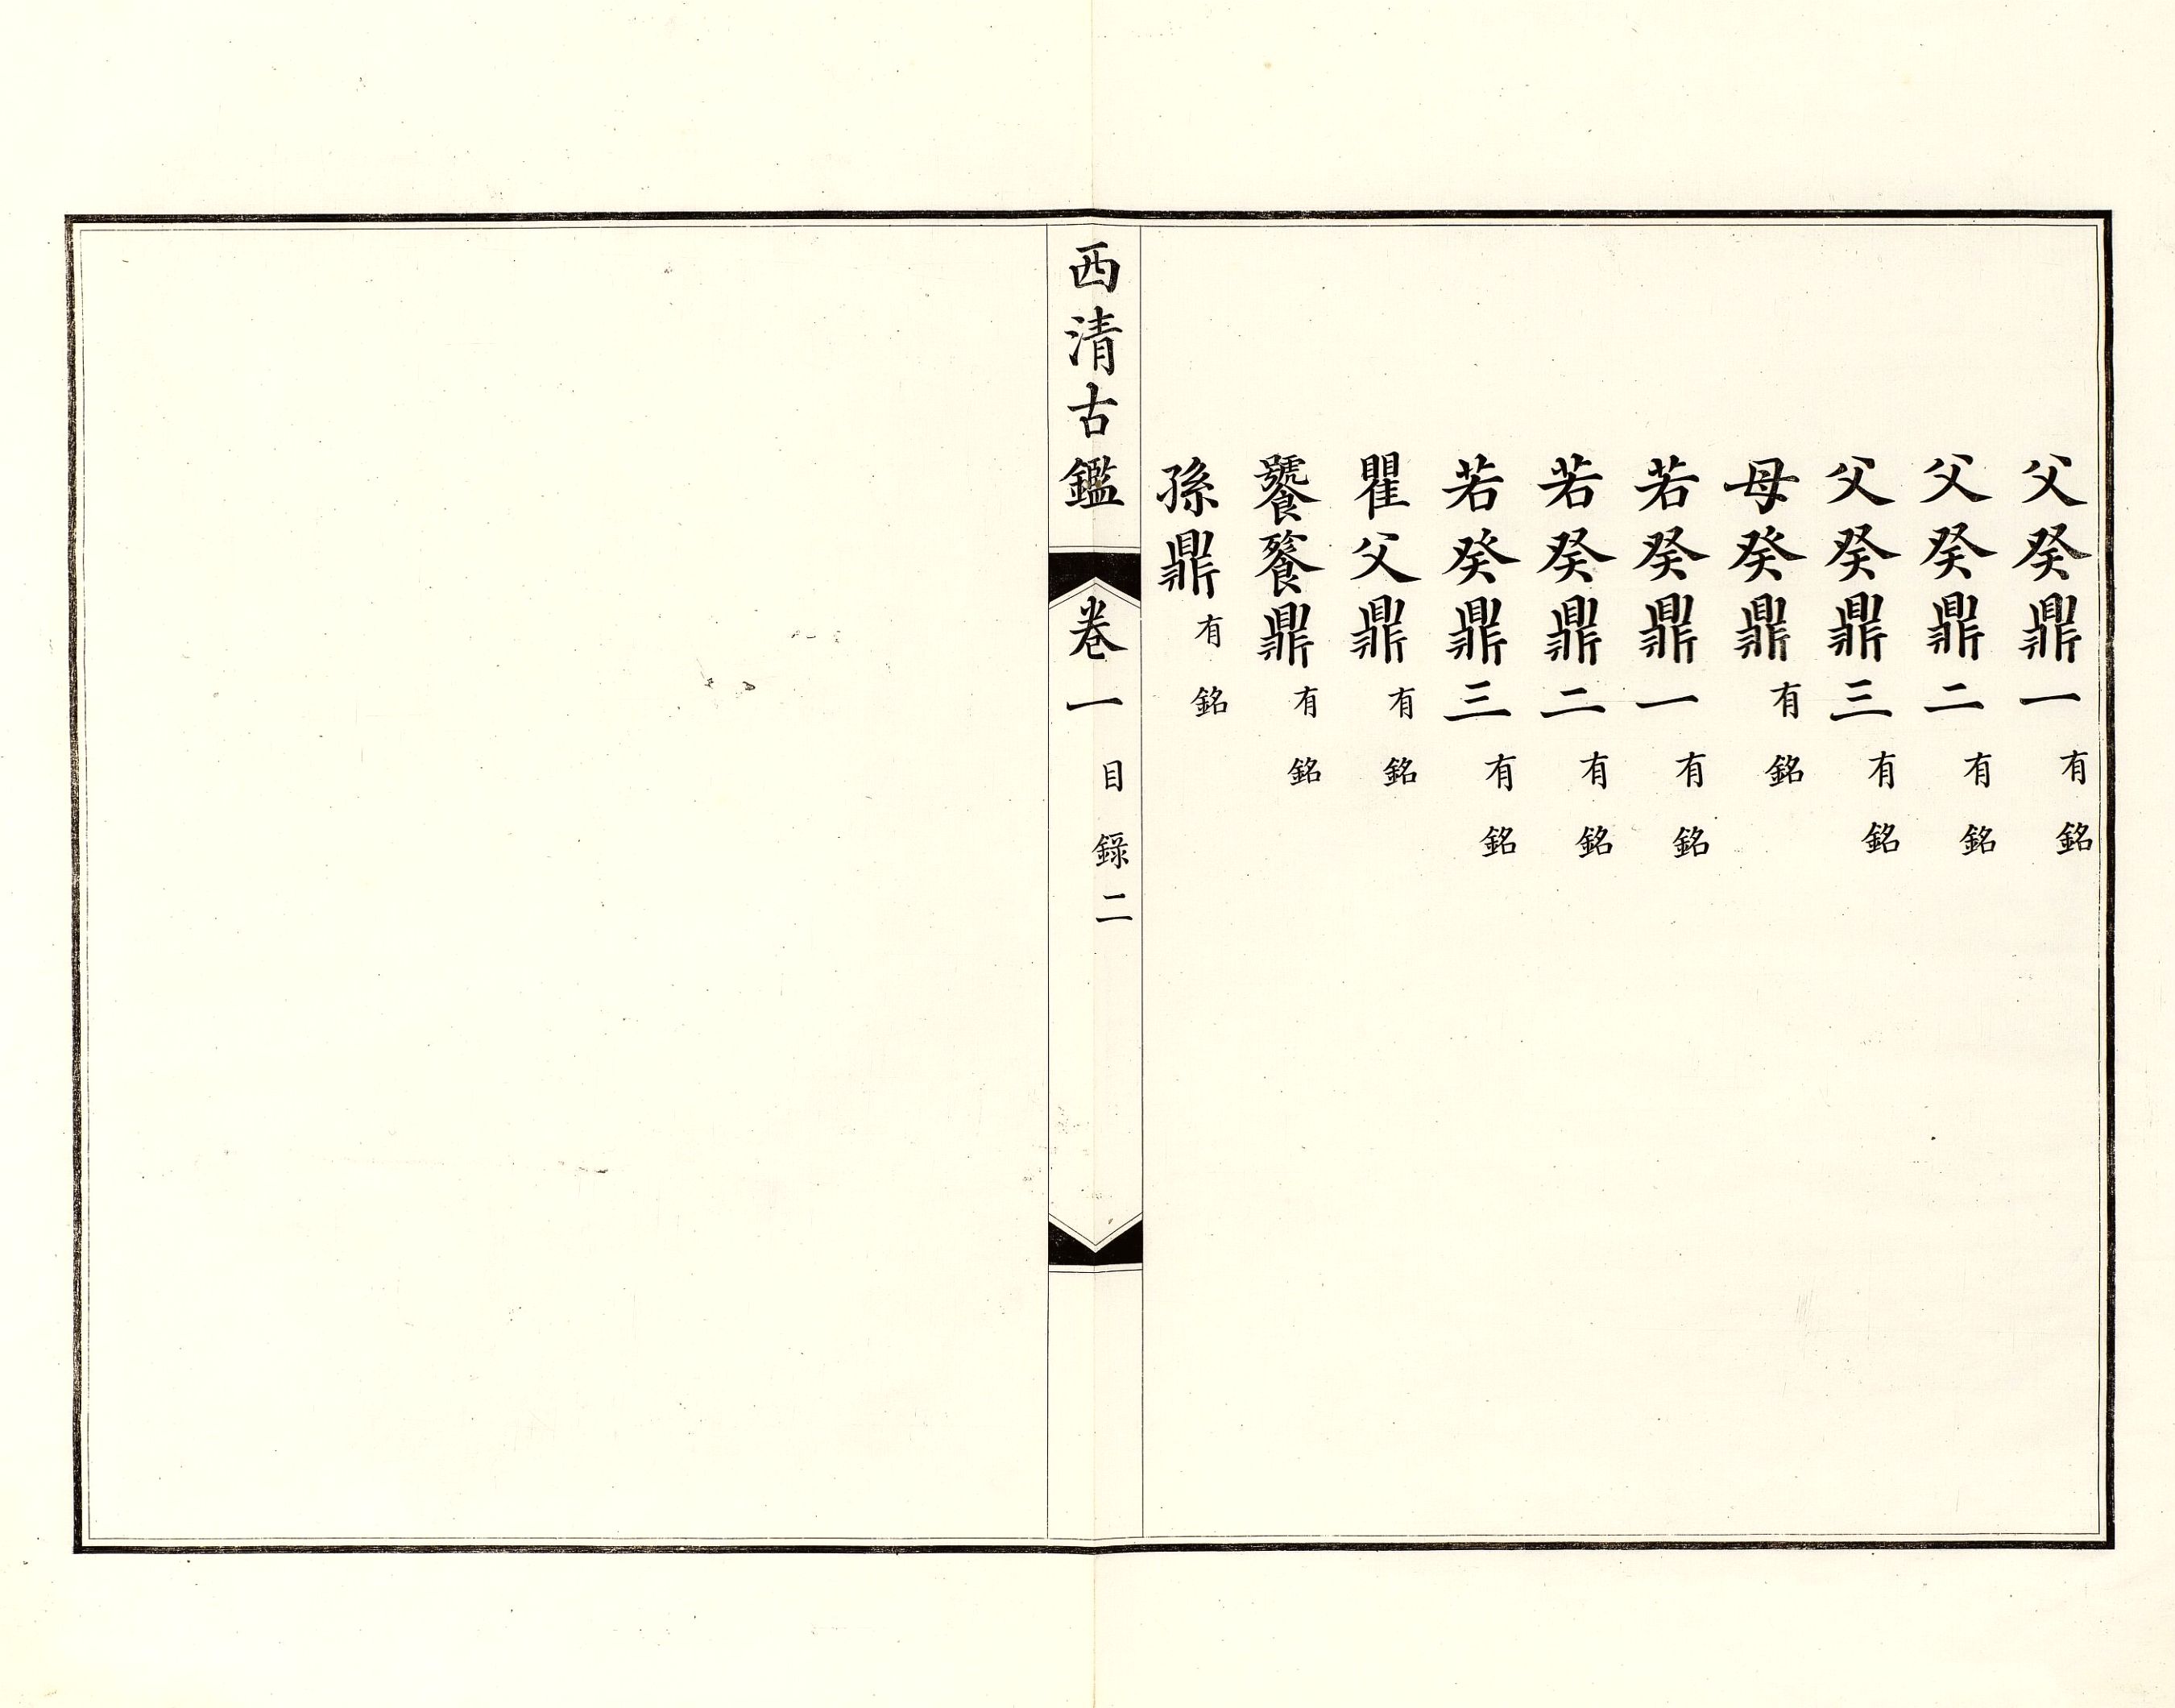 父癸鼎一有銘
父癸鼎二有銘
父癸鼎三有銘
母癸鼎有銘
若癸鼎一有銘
若癸鼎二有銘
若癸鼎三有銘
瞿父鼎有銘
饕餮鼎有銘
孫鼎有銘
西清古鑑
卷一
目錄二